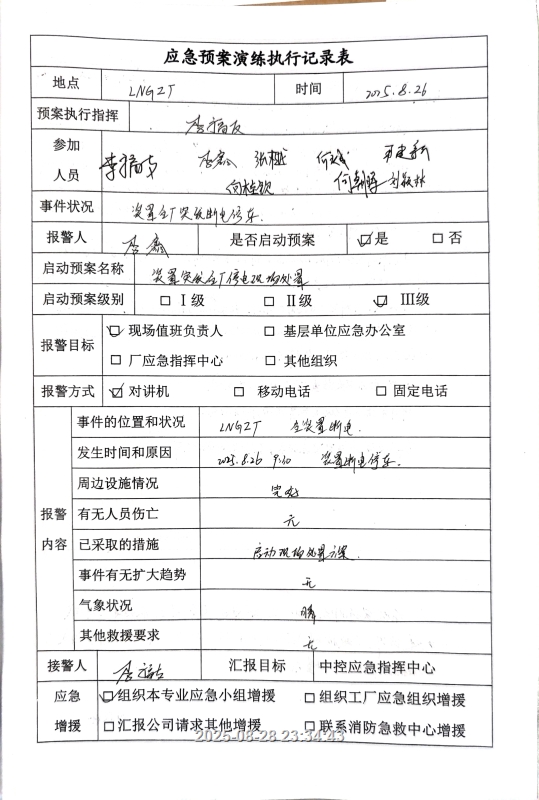 应急预案演练执行记录表
地点 LNG2T 时间 2025.8.26
预案执行指挥
参加
人员
事件状况 装置全厂突然断电停车.
报警人 李鑫 是否启动预案 ☑是 □否
启动预案名称 装置突然全厂停电现场处置
启动预案级别 □Ⅰ级 □Ⅱ级 ☑Ⅲ级
报警目标 ☑现场值班负责人 □基层单位应急办公室
□厂应急指挥中心 □其他组织
报警方式 ☑对讲机 □移动电话 □固定电话
报警内容 事件的位置和状况 LNG2T 全装置断电.
发生时间和原因 2025.8.26 9:10 装置断电停车.
周边设施情况 完好
有无人员伤亡 无
已采取的措施 启动现场处置方案.
事件有无扩大趋势 无
气象状况 晴
其他救援要求 无
接警人 汇报目标 中控应急指挥中心
应急 ☑组织本专业应急小组增援 □组织工厂应急组织增援
增援 □汇报公司请求其他增援 □联系消防急救中心增援
2025-08-28 23:34:43